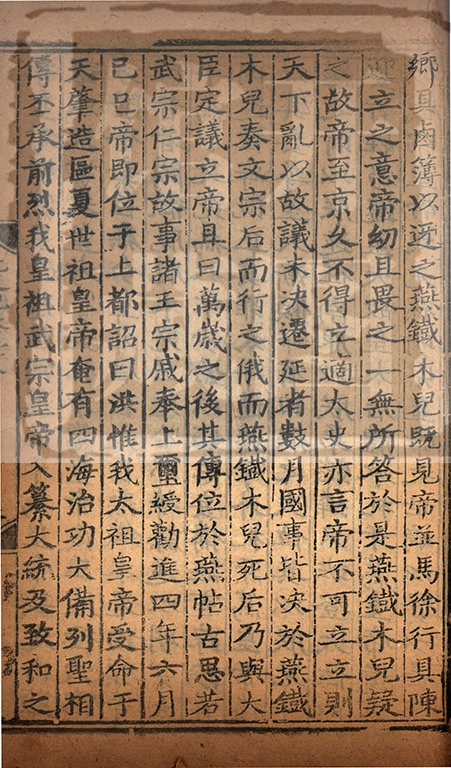 鄉具鹵簿以迓之燕鐵木兒旣見帝並馬徐行具陳
迎立之意帝幼且畏之一無所答於是燕鐵木兒疑
之故帝至京久不得立適太史亦言帝不可立立則
天下亂以故議未決遷延者數月國事皆決於燕鐵
木兒奏文宗后而行之俄而燕鐵木兒死后乃與大
臣定議立帝且曰萬歲之後其傳位於燕帖古思若
武宗仁宗故事諸王宗戚奉上璽綬勸進四年六月
己巳帝即位于上都詔曰洪惟我太祖皇帝受命于
天肇造區夏世祖皇帝奄有四海治功大備列聖相
傳丕承前烈我皇祖武宗皇帝入纂大統及致和之